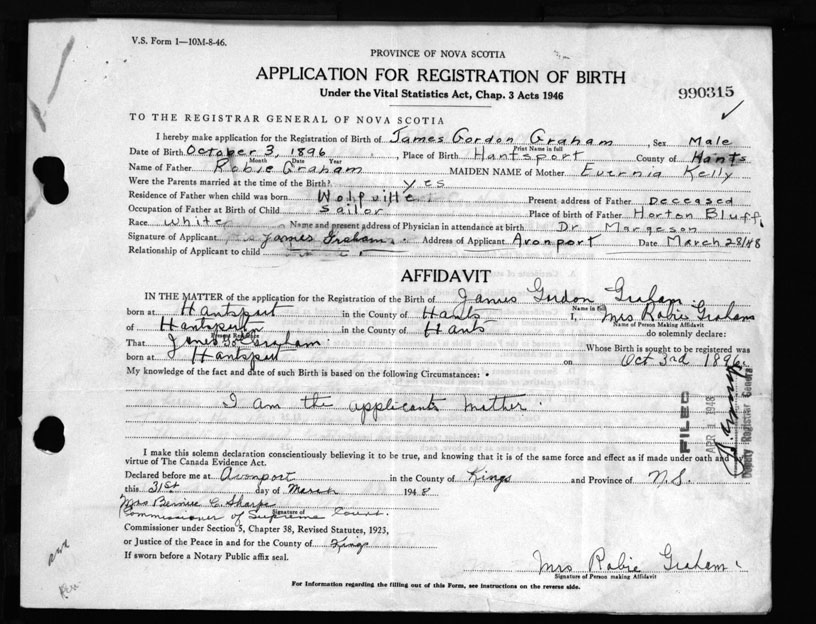 V.S. Form 1—10M-8-46.
PROVINCE OF NOVA SCOTIA
APPLICATION FOR REGISTRATION OF BIRTH
Under the Vital Statistics Act, Chap. 3 Acts 1946
990315
TO THE REGISTRAR GENERAL OF NOVA SCOTIA
I hereby make application for the Registration of Birth of James Gordon Graham, Sex Male
Print Name in full
Date of Birth October 3, 1896, Place of Birth Hantsport County of Hants
Month Date Year
Name of Father Robie Graham MAIDEN NAME of Mother Kelly
Were the Parents married at the time of the Birth? yes
Residence of Father when child was born Wolfville Present address of Father Deceased
Occupation of Father at Birth of Child Sailor Place of birth of Father Horton Bluff
Race White Name and present address of Physician in attendance at birth Dr Margeson
Signature of Applicant James Graham Address of Applicant Avonport Date March 28/48
Relationship of Applicant to child
AFFIDAVIT
IN THE MATTER of the application for the Registration of the Birth of James Gordon Graham
Name in full
born at Hantsport in the County of Hants I, Mrs Robie Graham
Name of Person Making Affidavit
of Hantsport in the County of Hants do solemnly declare:
That James G. Graham Whose Birth is sought to be registered was
born at Hantsport on Oct 3rd 1896
My knowledge of the fact and date of such Birth is based on the following Circumstances:
I am the applicants mother.
FILED
APR 1 1948
Deputy Registrar General
I make this solemn declaration conscientiously believing it to be true, and knowing that it is of the same force and effect as if made under oath and by
virtue of The Canada Evidence Act.
Declared before me at Avonport in the County of Kings and Province of N.S.
this 31st day of March 1948
Mrs Bernice C. Sharpe
Signature of
Commissioner of Supreme Court.
Commissioner under Section 5, Chapter 38, Revised Statutes, 1923,
or Justice of the Peace in and for the County of Kings
If sworn before a Notary Public affix seal.
Mrs Robie Graham
Signature of Person making Affidavit
For Information regarding the filling out of this Form, see instructions on the reverse side.